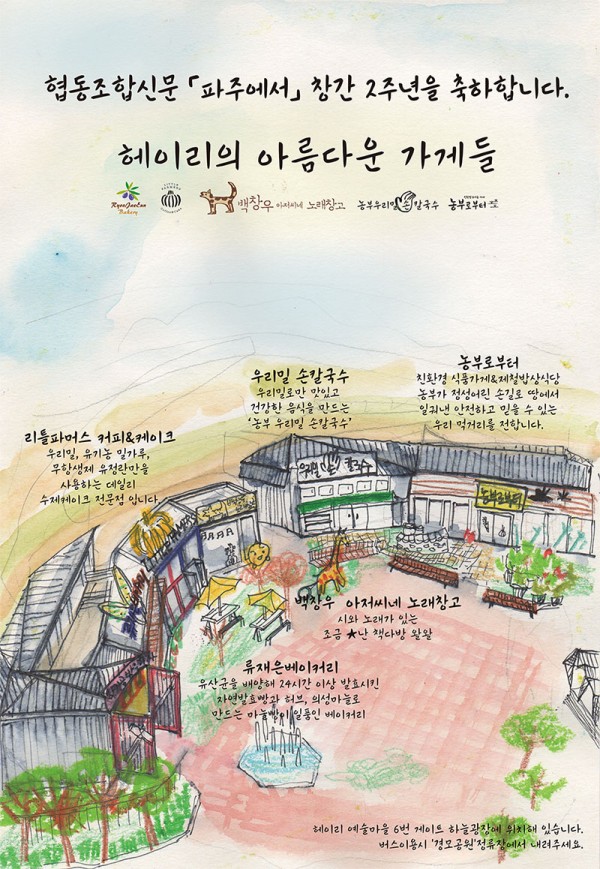 협동조합신문「파주에서」창간 2주년을 축하합니다.
헤이리의 아름다운 가게들
RyuJaeEun
Bakery
백창우 아저씨네 노래창고
농부우리밀손칼국수
농부로부터
농부로부터
친환경 식품가게&제철밥상식당
농부가 정성어린 손길로 땅에서
일궈낸 안전하고 믿을 수 있는
우리 먹거리를 전합니다.
우리밀 손칼국수
우리밀로만 맛있고
건강한 음식을 만드는
'농부 우리밀 손칼국수'
리틀파머스 커피&케이크
우리밀, 유기농 밀가루,
무항생제 유정란만을
사용하는 데일리
수제케이크 전문점 입니다.
우리밀 손 칼국수
농부로부터
백창우 아저씨네 노래창고
시와 노래가 있는
조금 ★난 책다방 왈왈
류재은베이커리
유산균을 배양해 24시간 이상 발효시킨
자연발효빵과 허브, 의성마늘로
만드는 마늘빵이 일품인 베이커리
헤이리 예술마을 6번 게이트 하늘광장에 위치해 있습니다.
버스이용시 '경모공원'정류장에서 내려주세요.